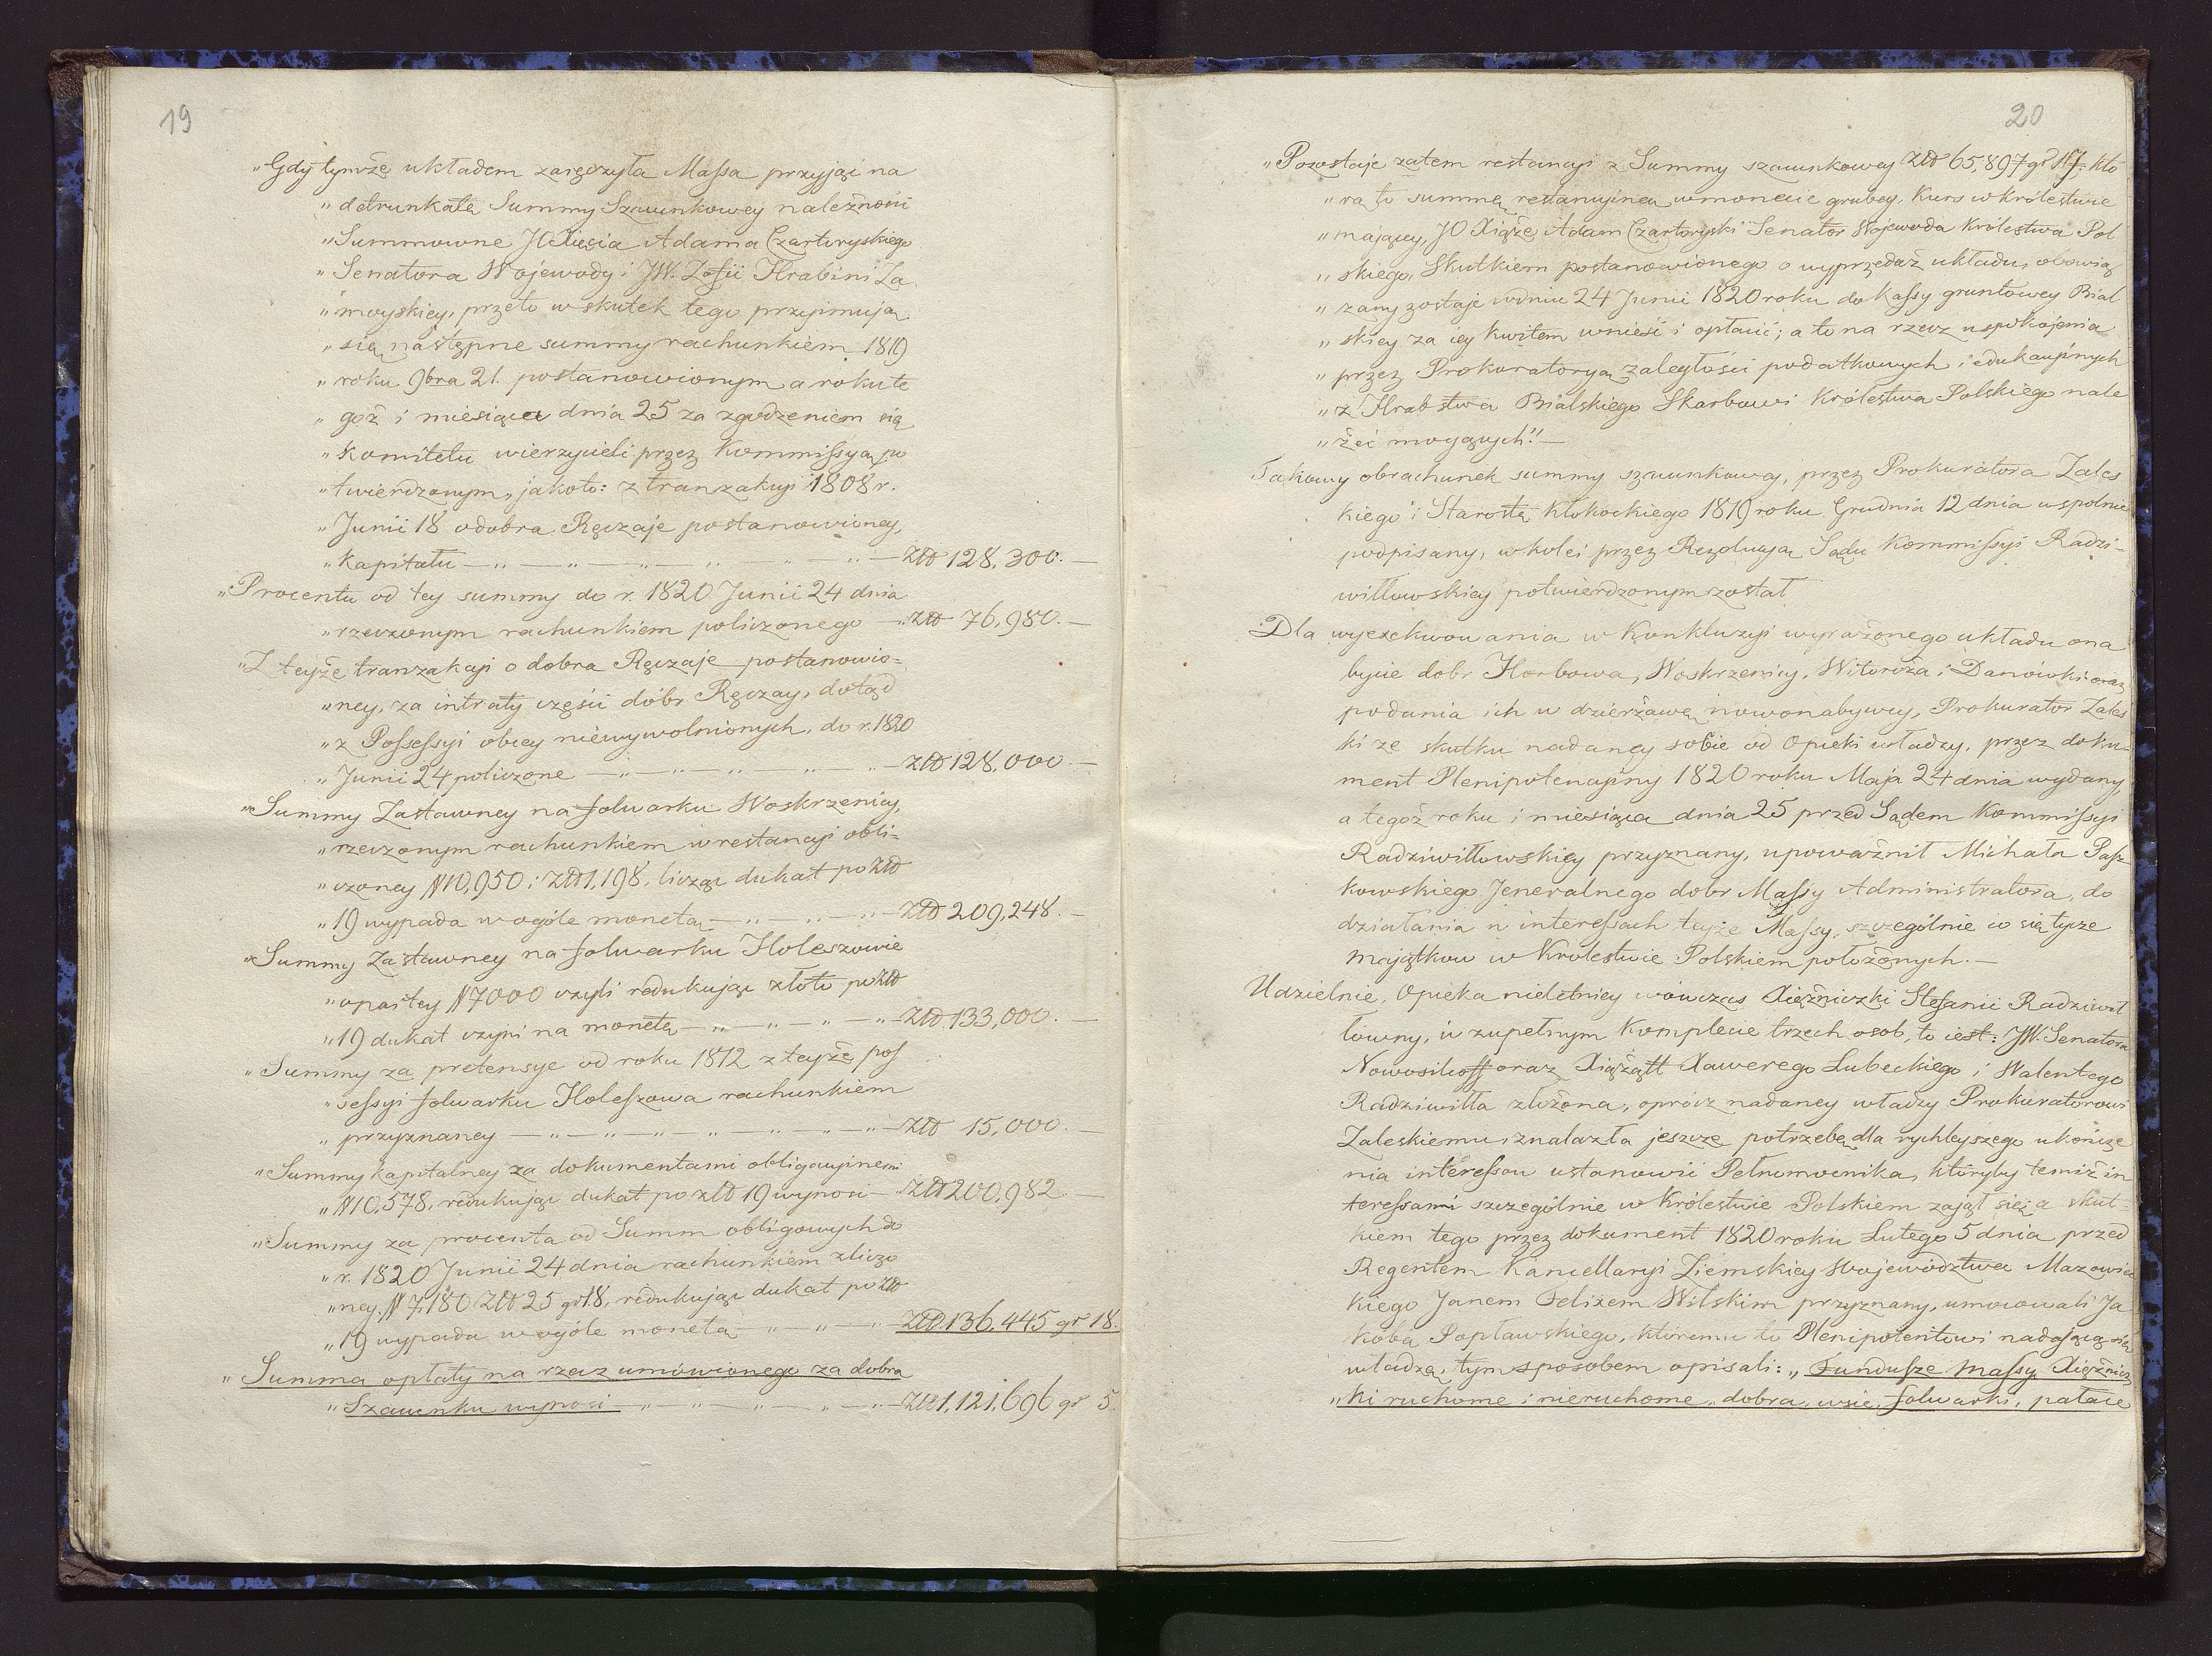 19
„Gdy tymże układem zaręczyła Massa przyjąć na
„detrunkatę Summy Szacunkowey należności
„Summowne JO Xięcia Adama Czartoryskiego
„Senatora Wojewody i JW. Zofii Hrabini Za
„moyskiey, przeto w skutek tego przyjmują
„się następne summy rachunkiem 1819
„roku 9bra 21. postanowionym a roku te
„goż i miesiąca dnia 25 za zgodzeniem się
„Komitetu wierzycieli przez Kommissyą po
„twierdzonym, jakoto: z tranzakcyi 1808 r.
„Junii 18 o dobra Ręczaje postanowioney,
„Kapitału — „ — „ — „ — „ — „ — Złd 128,300. —
„Procentu od tey summy do r. 1820 Junii 24 dnia
„rzeczonym rachunkiem policzonego — „ Złd 76,980. —
„Z teyże tranzakcyi o dobra Ręczaje postanowio-
„ney, za intraty części dóbr Ręczay, dotąd
„z Possessyi obcey niewywolnionych, do r. 1820
„Junii 24 policzone — „ — „ — „ — „ — Złd 128,000. —
„Summy Zastawney na folwarku Woskrzenicy,
„rzeczonym rachunkiem w restancyi obli-
„czoney #10,950 i Złd 1,198, licząc dukat po Złd
„19 wypada w ogóle monetą — „ — „ — „ — Złd 209,248. —
„Summy Zastawney na folwarku Holeszowie
„opartey #7000 czyli redukując złoto po Złd
„19 dukat czyni na monetę — „ — „ — „ — „ — Złd 133,000. —
„Summy za pretensye od roku 1812 z teyże pos
„sessyi folwarku Holeszowa rachunkiem
„przyznaney — „ — „ — „ — „ — „ — „ — Złd 15,000. —
„Summy kapitalney za dokumentami obligacyinemi
„#10,578, redukując dukat po złd 19 wynosi — Złd 200,982 —
„Summy za procenta od Summ obligowych do
„r. 1820 Junii 24 dnia rachunkiem zliczo
„ney. #7,180 Złd 25 gr 18, redukując dukat po Złd
„19 wypada w ogóle monetą — „ — „ — „ — Złd 136,445 gr 18.
„Summa opłaty na rzecz umówionego za dobra
„Szacunku wynosi — „ — „ — „ — „ — „ — Złd 1,121,696 gr 5.
20
„Pozostaje zatem restancyi z Summy szacunkowey Złd 65,897 gr któ
„rą to summę restancyiną w monecie grubey, Kurs w Królestwie
„mającey, JO Xiąże Adam Czartoryski Senator Wojewoda Królestwa Pol
„skiego, Skutkiem postanowionego o wyprzedaż układu, obowią
„zany zostaje w dniu 24 Junii 1820 roku do kassy gruntowey Bial
„skiey za iey kwitem wnieść i opłacić; a to na rzecz uspokojenia
„przez Prokuratoryą zaległości podatkowych i edukacyinych
„z Hrabstwa Bialskiego Skarbowi Królestwa Polskiego nale
„żeć mogących." —
Takowy obrachunek summy szacunkowey, przez Prokuratora Zales
kiego i Starostę Kłokockiego 1819 roku Grudnia 12 dnia wspolnie
podpisany, w kolei przez Rezolucyą Sądu Kommissyi Radzi-
wiłłowskiey potwierdzonym został
Dla wyexekwowania w Konkluzyi wyrażonego układu o na
bycie dobr Horbowa, Woskrzenicy, Witoroża i Danówki oraz
podania ich w dzierżawę nowonabywcy, Prokurator Zales
ki ze skutku nadaney sobie od Opieki władzy, przez doku-
ment Plenipotencyiny 1820 roku Maja 24 dnia wydany,
a tegoż roku i miesiąca dnia 25 przed Sądem Kommissyi
Radziwiłłowskiey przyznany, upoważnił Michała Pasz
kowskiego Jeneralnego dobr Massy Administratora, do
działania w interessach teyże Massy, szczególnie co się tycze
majątkow w Królestwie Polskiem położonych. —
Udzielnie, Opieka nieletniey wówczas Xiężniczki Stefanii Radziwił
łowny, w zupełnym Komplecie trzech osob, to iest: JW. Senatora
Nowosilcoff oraz Xiążątt Xawerego Lubeckiego i Walentego
Radziwiłła złożona, oprócz nadaney władzy Prokuratorowi
Zaleskiemu, znalazła jeszcze potrzebę dla rychleyszego ukończe
nia interessow ustanowić Pełnomocnika, któryby temiż in
teressami szczególnie w Królestwie Polskiem zajął się; a skut-
kiem tego przez dokument 1820 roku Lutego 5 dnia przed
Regentem Kancellaryi Ziemskiey Województwa Mazowiec
kiego Janem Felixem Wilskim przyznany, umocowali Ja
koba Popławskiego, któremu to Plenipotentowi nadającą się
władzę, tym sposobem opisali: „Fundusze Massy Xiężnicz
„ki ruchome i nieruchome, dobra, wsie, folwarki, pałace